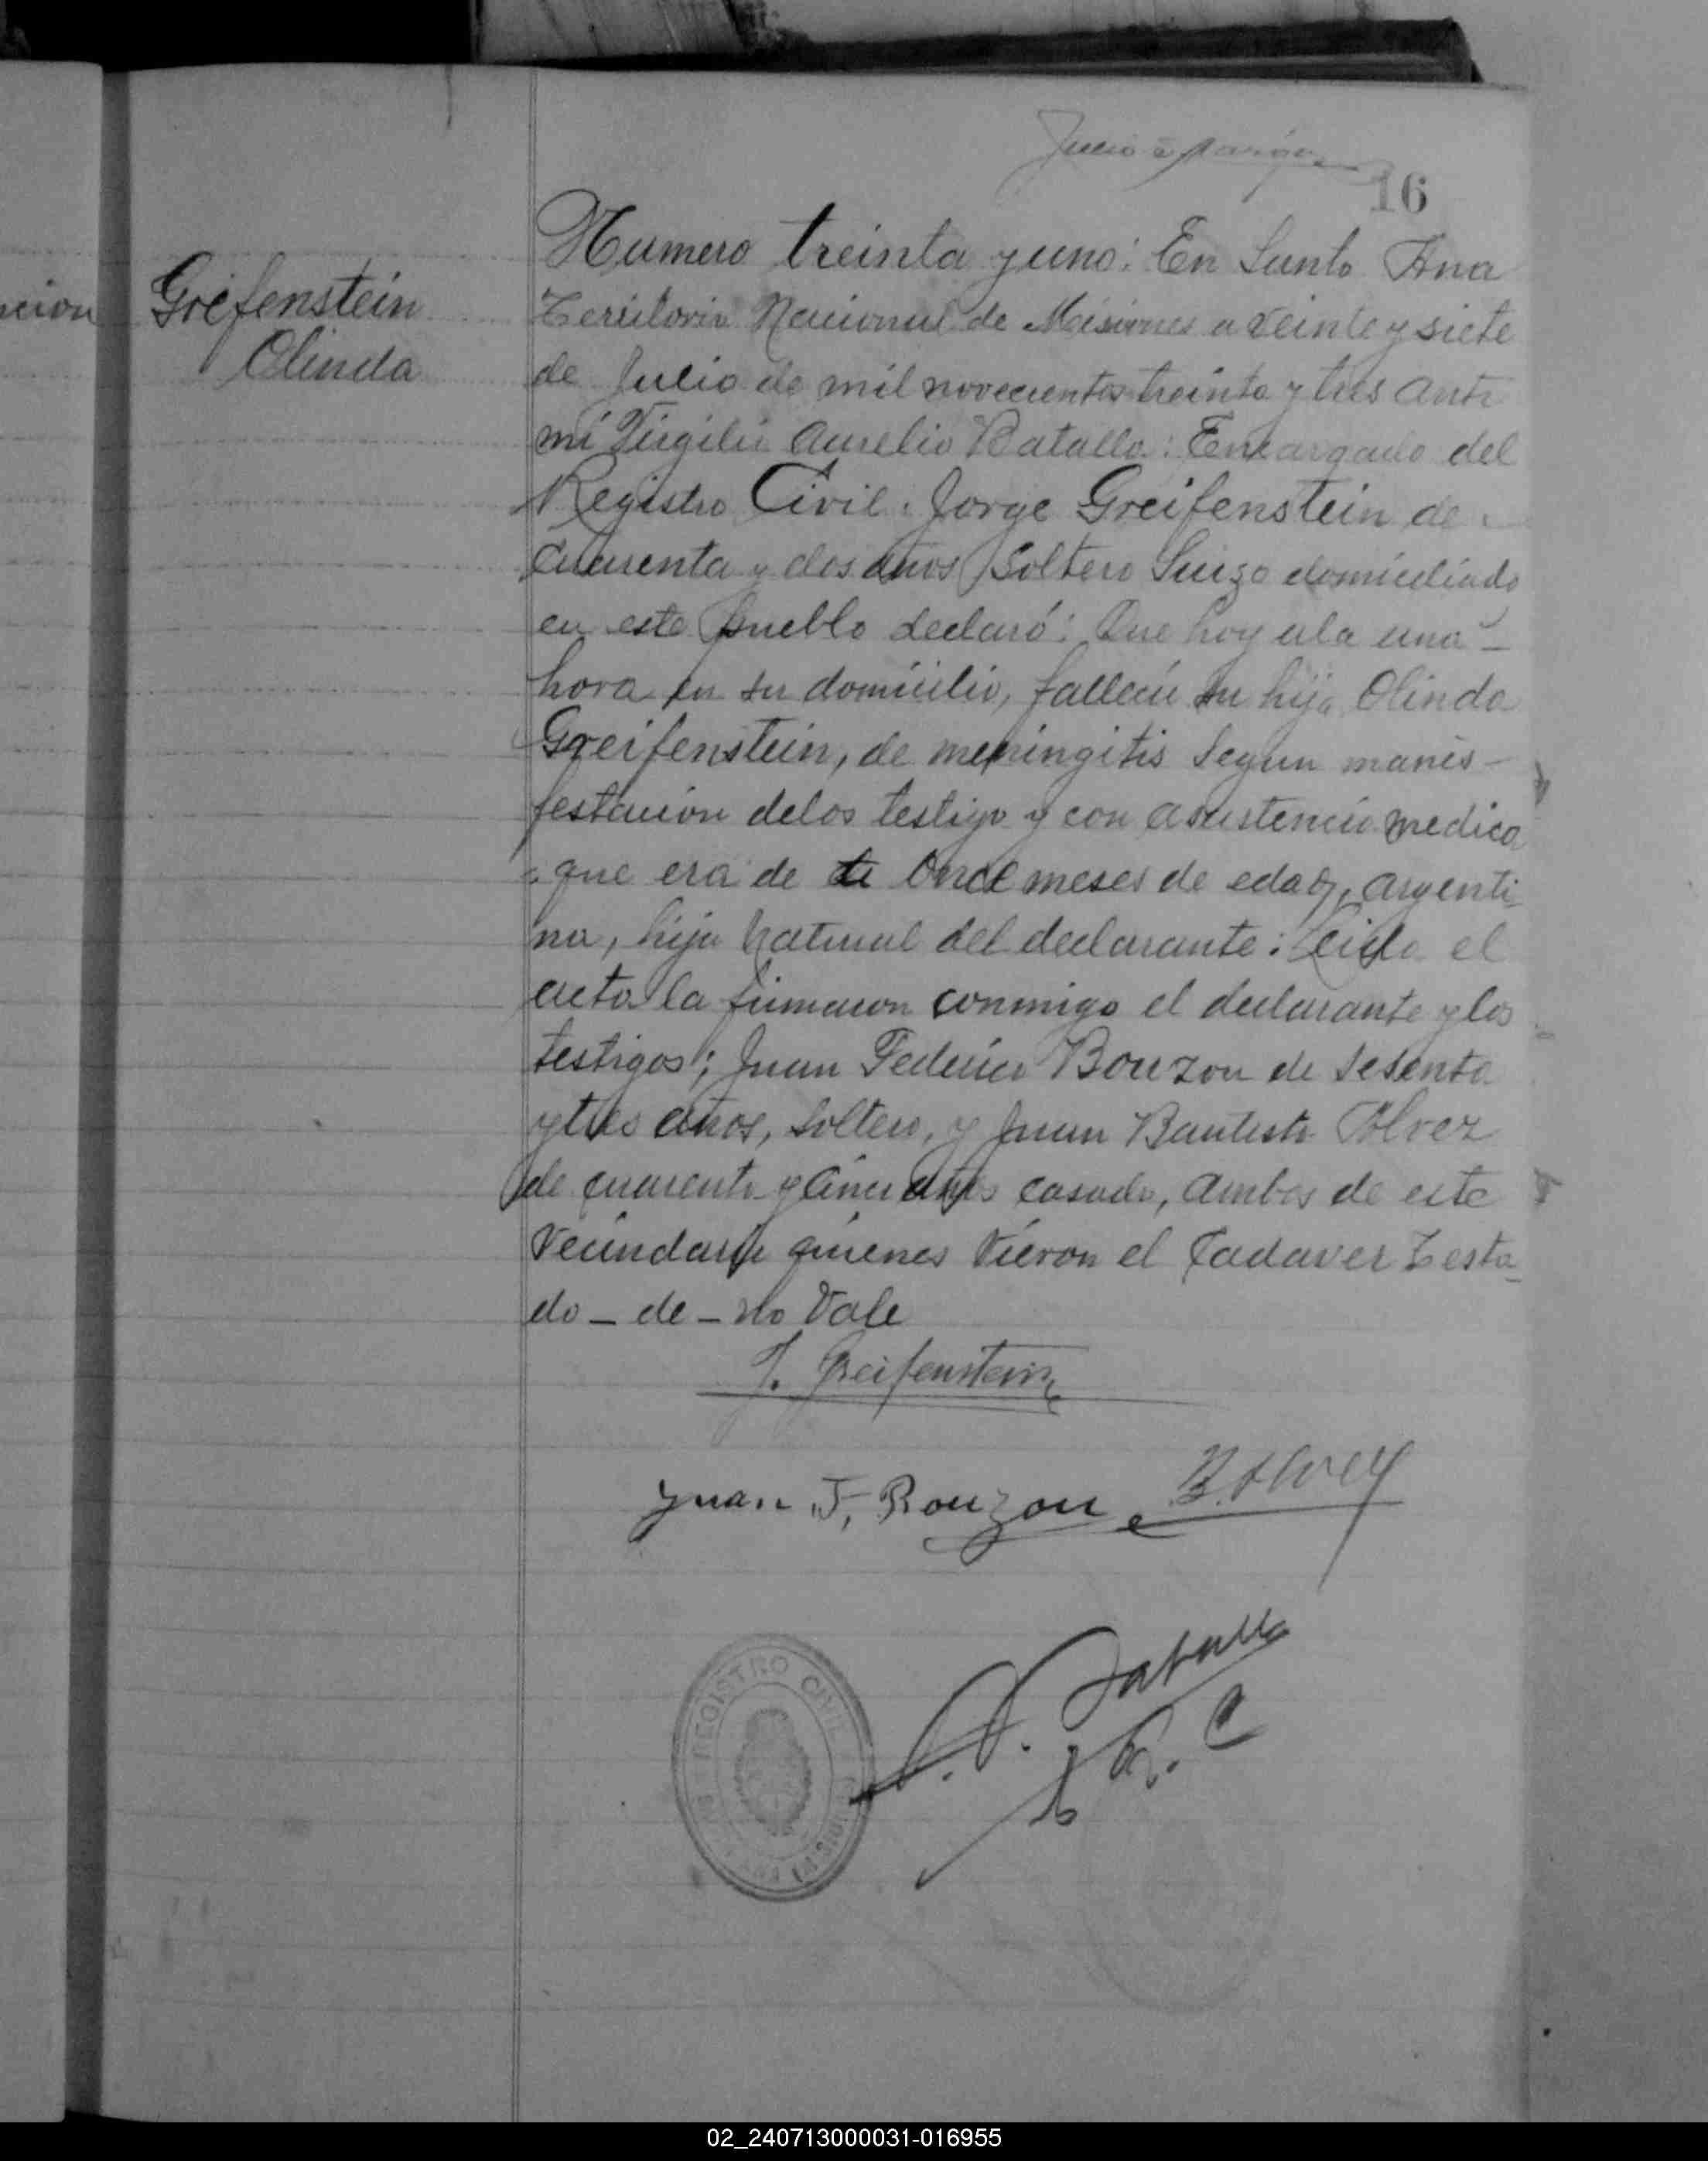 16
Grefenstein
Olinda
Numero treinta y uno: En Santa Ana
Territorio Nacional de Misiones a veinte y siete
de Julio de mil novecientos treinta y tres ante
mi Virgilio Aurelio Batalla: Encargado del
Registro Civil: Jorge Greifenstein de
cuarenta y dos años Soltero Suizo domiciliado
en este pueblo declaró: Que hoy a la una
hora en su domicilio, fallecio su hija Olinda
Greifenstein, de meningitis segun manis-
festacion delos testigo y con asistencia medica
que era de de once meses de edad, argenti-
na, hija natural del declarante: Leida el
acta la firmaron conmigo el declarante y los
testigos; Juan Federico Bouzon de sesenta
y tres años, soltero, y Juan Bautista Alvez
de cuarenta y cinco años casado, ambos de este
vecindario quienes vieron el Cadaver Testa-
do - de - no vale
J. Greifenstein
Juan F. Bouzon B. Alvez
V. A. Batalla
E. R. C
REGISTRO CIVIL
02_240713000031-016955